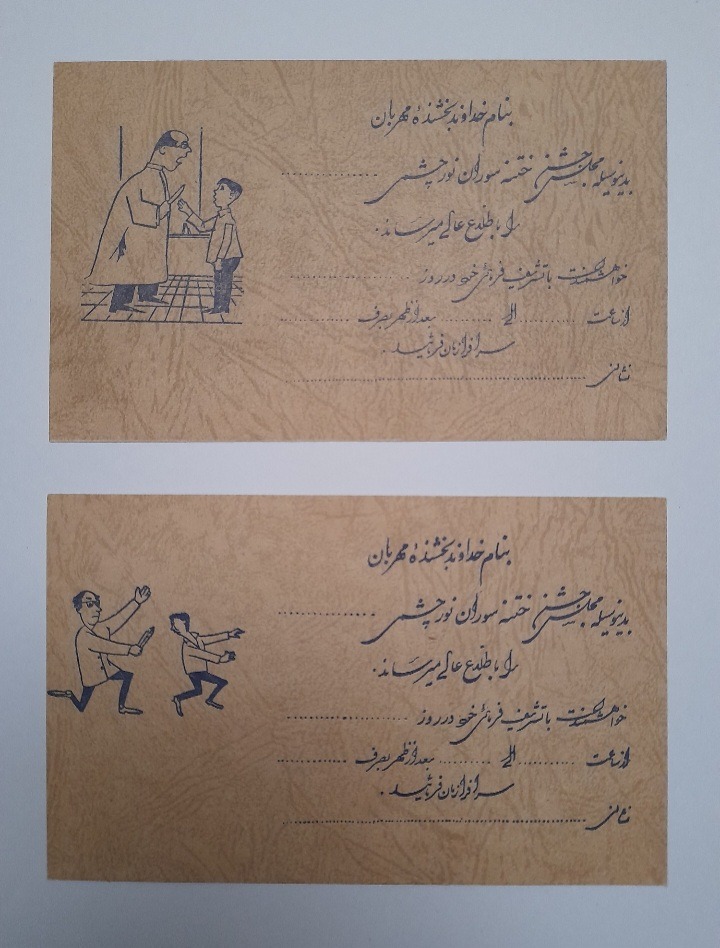 بنام خداوند بخشندهٔ مهربان
بدینوسیله مجلس جشن ختنه سوران نورچشمی ....................
را باطلاع عالی میرساند.
خواهشمند است با تشریف فرمائی خود در روز ....................
از ساعت ............ الی ............ بعد از ظهر بصرف ................
سرافرازمان فرمائید.
نشانی ............................................................
بنام خداوند بخشندهٔ مهربان
بدینوسیله مجلس جشن ختنه سوران نورچشمی ....................
را باطلاع عالی میرساند.
خواهشمند است با تشریف فرمائی خود در روز ....................
از ساعت ............ الی ............ بعد از ظهر بصرف ................
سرافرازمان فرمائید.
نشانی ............................................................